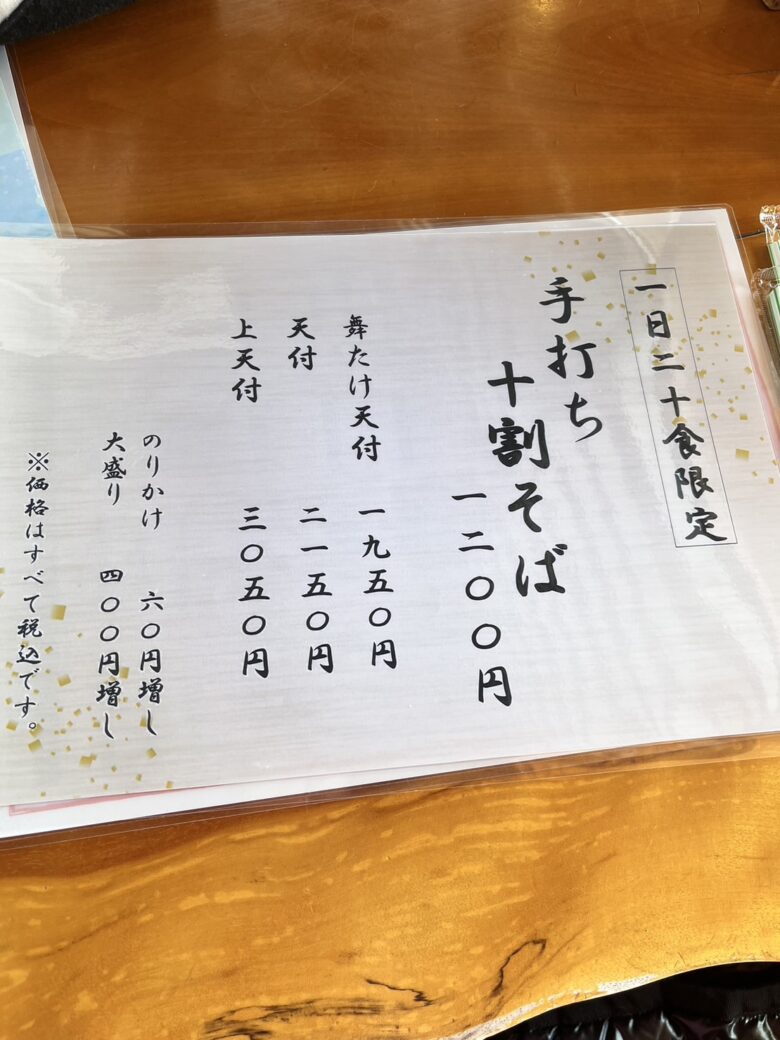 一日二十食限定
手打ち
十割そば
一二〇〇円
舞たけ天付 一九五〇円
天付 二一五〇円
上天付 三〇五〇円
のりかけ 六〇円増し
大盛り 四〇〇円増し
※価格はすべて税込です。